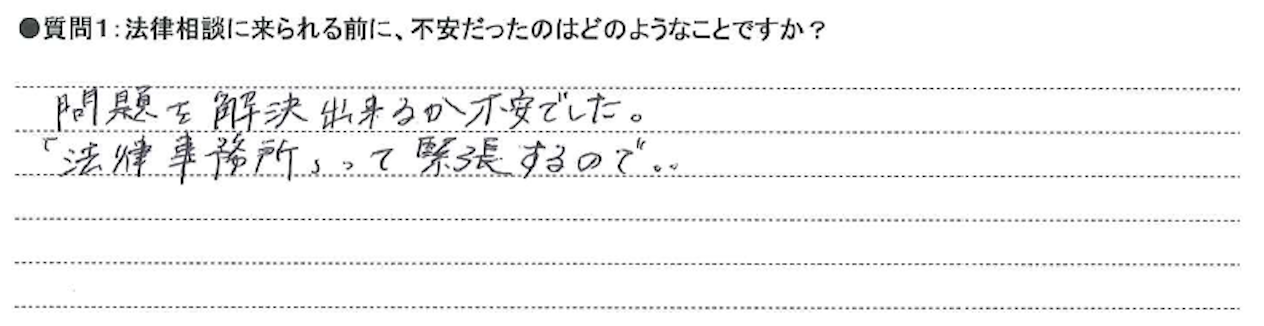 ●質問1:法律相談に来られる前に、不安だったのはどのようなことですか？
問題を解決出来るか不安でした。
「法律事務所」って緊張するので。。